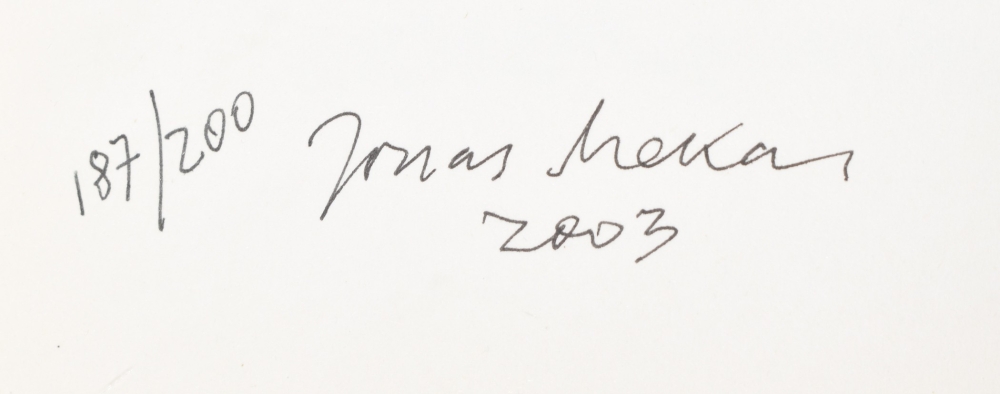 187/200 Jonas Mekas
2003